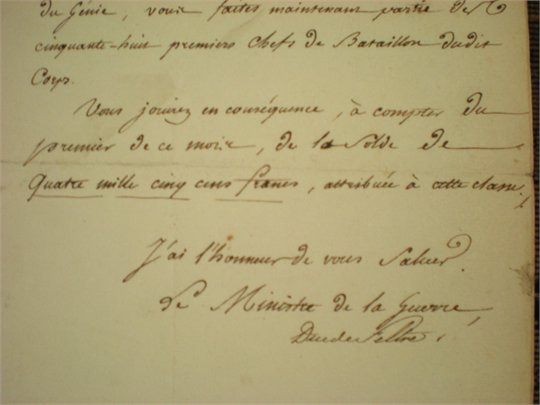 du Génie, vous faites maintenant partie des
cinquante-huit premiers Chefs de Bataillon dudit
Corps.
Vous jouirez en conséquence, à compter du
premier de ce mois, de la Solde de
Quatre mille cinq cens francs, attribuée à cette classe.
J'ai l'honneur de vous Saluer.
Le Ministre de la Guerre,
Duc de Feltre